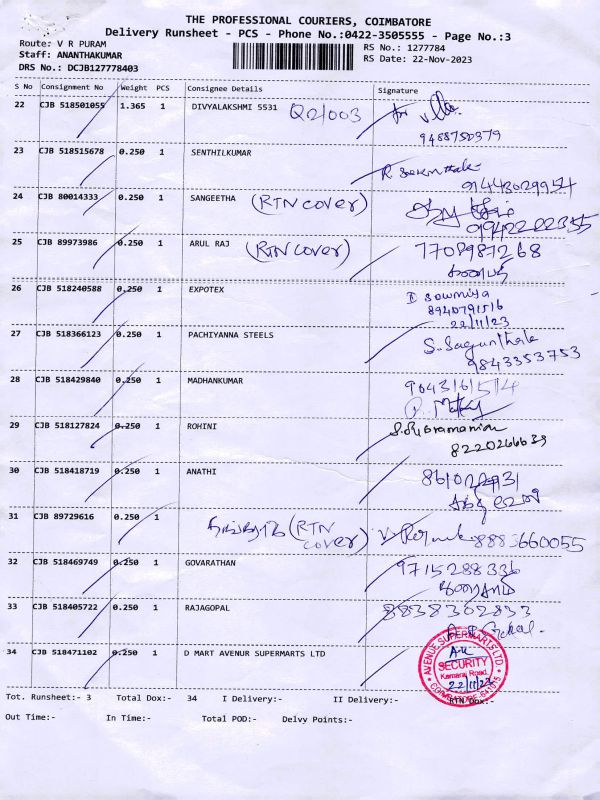 THE PROFESSIONAL COURIERS, COIMBATORE
Delivery Runsheet - PCS - Phone No.:0422-3505555 - Page No.:3
Route: V R PURAM
RS No.: 1277784
Staff: ANANTHAKUMAR
RS Date: 22-Nov-2023
DRS No.: DCJB127778403
S No Consignment No Weight PCS Consignee Details Signature
22 CJB 518501055 1.365 1 DIVYALAKSHMI 5531
9488750379
23 CJB 518515678 0.250 1 SENTHILKUMAR
24 CJB 80014333 0.250 1 SANGEETHA (RTN cover)
25 CJB 89973986 0.250 1 ARUL RAJ (RTN cover) 7708987268
26 CJB 518240588 0.250 1 EXPOTEX
Sowmiya
8940791516
22/11/23
27 CJB 518366123 0.250 1 PACHIYANNA STEELS
S. Sagunthala
9843353753
28 CJB 518429840 0.250 1 MADHANKUMAR
29 CJB 518127824 0.250 1 ROHINI
8220266639
30 CJB 518418719 0.250 1 ANATHI
31 CJB 89729616 0.250 1 (RTN cover) 8883660055
32 CJB 518469749 0.250 1 GOVARATHAN 9715288336
33 CJB 518405722 0.250 1 RAJAGOPAL 8838302833
34 CJB 518471102 0.250 1 D MART AVENUR SUPERMARTS LTD
AVENUE SUPERMARTS LTD
SECURITY
Kamaraj Road
22/11/23
Tot. Runsheet:- 3 Total Dox:- 34 I Delivery:- II Delivery:- RTN Dox:-
Out Time:- In Time:- Total POD:- Delvy Points:-